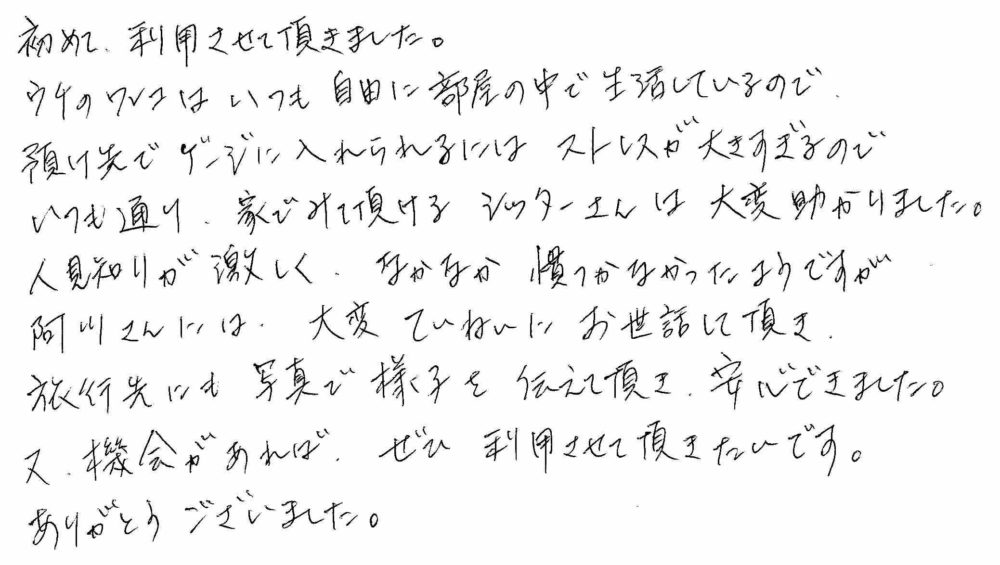 初めて、利用させて頂きました。
ウチのワンコはいつも自由に部屋の中で生活しているので、
預け先でゲージに入れられるにはストレスが大きすぎるので
いつも通り、家でみて頂けるシッターさんは大変助かりました。
人見知りが激しく、なかなか慣つかなかったようですが
阿川さんには、大変ていねいにお世話して頂き、
旅行先にも写真で様子を伝えて頂き、安心できました。
又、機会があれば、ぜひ利用させて頂きたいです。
ありがとうございました。